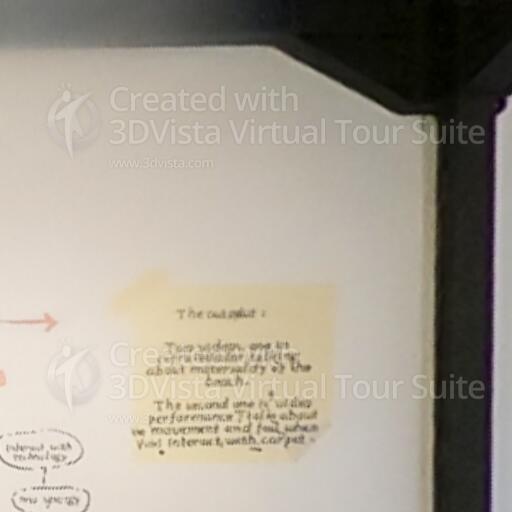 Created with
3DVista Virtual Tour Suite
www.3dvista.com
The output:
Two videos, one is
talking
about materiality of the
The second one is video
performance I talk about
movement and feel when
interact with carpet.
3DVista Virtual Tour Suite
www.3dvista.com
interact with
technology